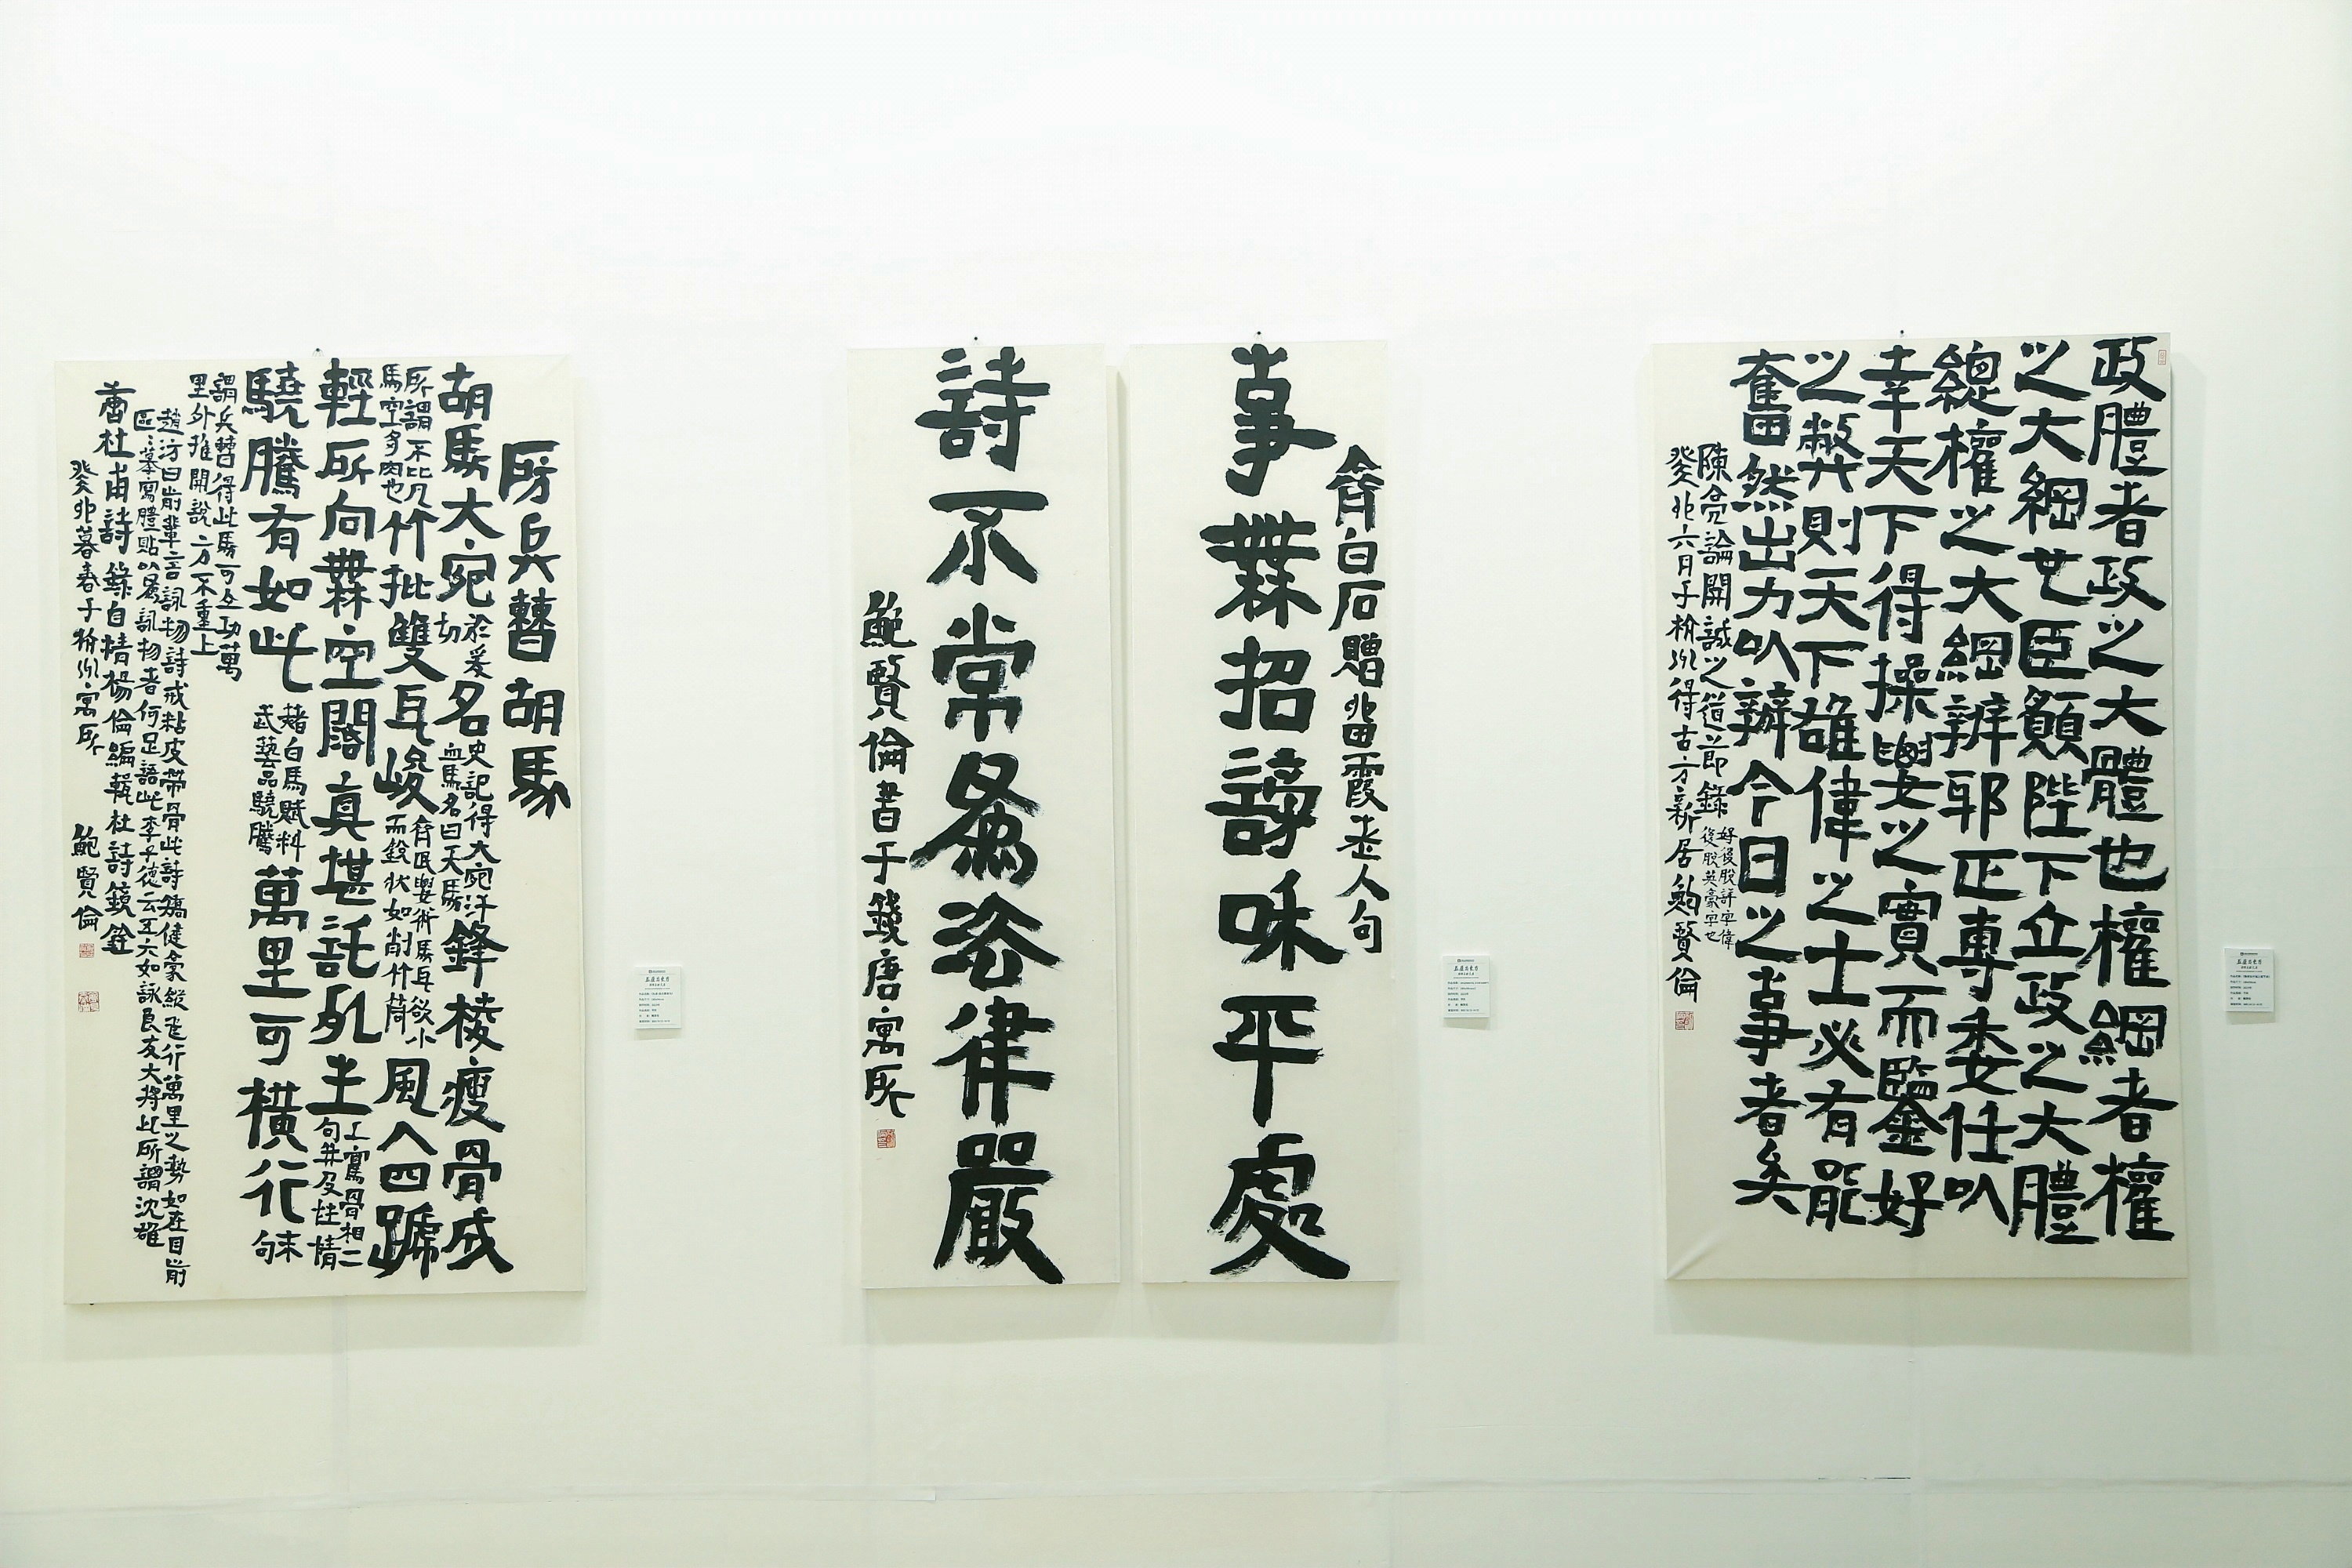 政體者政之大體也權綱者權
之大綱也臣願陛下立政之大體
總權之大綱辨邪正專委任以
幸天下得操與之實而鑒好
之弊則天下雄偉之士必有能
奮然出力以辦今日之事者矣
陳亮論開誠之道節錄
好後脫詳字偉
後脫英豪字也
癸卯六月于杭州得古方新居鮑賢倫
齊白石贈留霞老人句
事無招謗咊平處
詩不常為恣律嚴
鮑賢倫書于錢唐寓所
房兵曹胡馬
胡馬大宛
於爰
切
名
史記得大宛汗
血馬名曰天馬
鋒棱瘦骨成
所謂不比凡
馬空多肉也
竹批雙耳峻
齊民要術馬耳欲小
而銳狀如削竹筒
風入四蹄
輕所向無空闊真堪託死生
上寫骨相二
句並及性情
驍騰有如此
赭白馬賦料
武藝品驍騰
萬里可橫行
末
句
謂兵曹得此馬可立功萬
里外推開說方不重上
趙汸曰前輩言詠物詩戒粘皮帶骨此詩矯健豪縱飛行萬里之勢如在目前
區〻摹寫體貼以為詠物者何足語此李子德云五六如詠良友大將此所謂沈雄
曹杜甫詩錄自清楊倫編輯杜詩鏡銓
癸卯暮春于杭州寓所 鮑賢倫